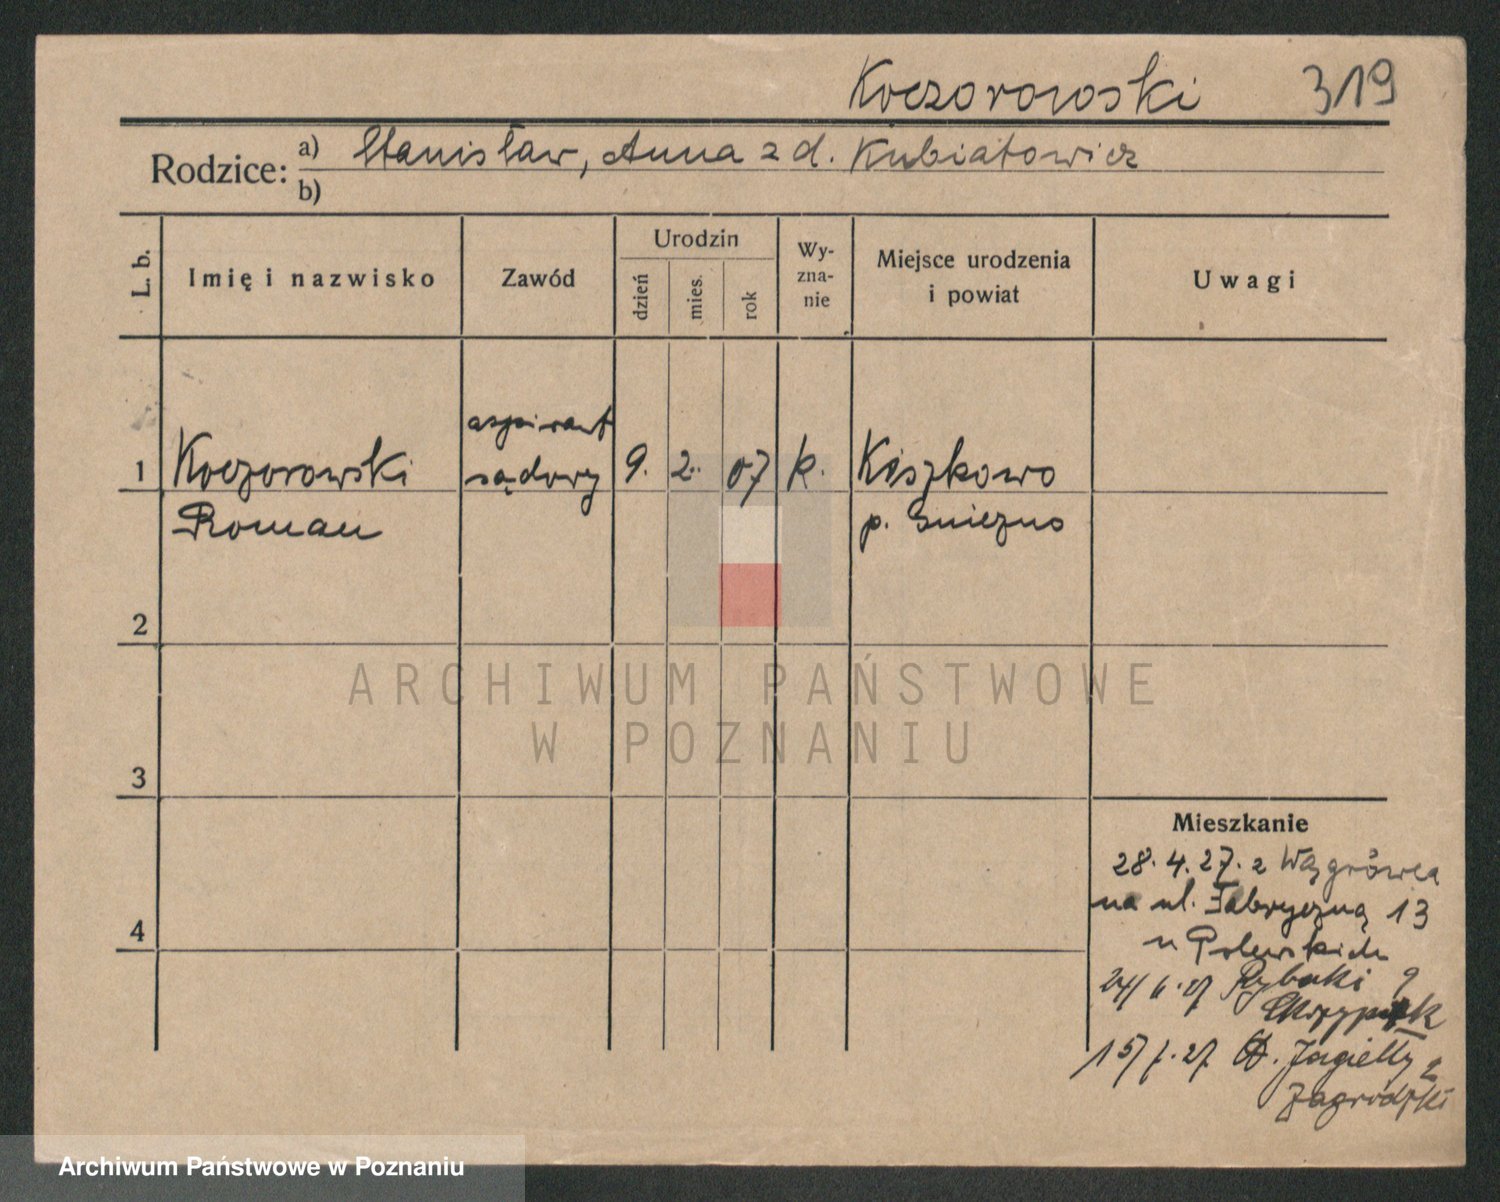 Koczorowski 319
Rodzice: a) Stanisław, Anna z d. Kubiatowicz
b)
L. b.
Imię i nazwisko
Zawód
Urodzin
dzień
mies.
rok
Wy-
zna-
nie
Miejsce urodzenia
i powiat
Uwagi
aspirant
1 Koczorowski sądowy 9. 2. 07 k. Kiszkowo
Roman p. Gniezno
2
ARCHIWUM PAŃSTWOWE
W POZNANIU
3
Mieszkanie
28.4.27. z Wągrówca
na ul. Fabryczną 13
4
u Polewskich
24/6.27 Rybaki 9
Skrzypek
15/7.27 Jagiełły 2
Zagrodzki
Archiwum Państwowe w Poznaniu